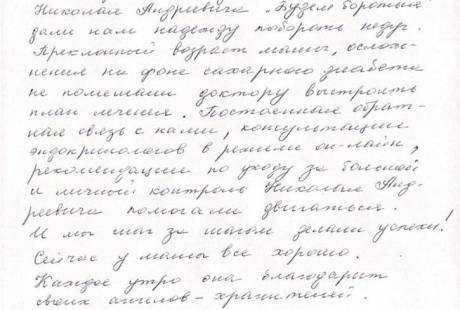 Николая Андреевича „Будем бороться"
дали нам надежду побороть недуг.
Преклонный возраст мамы, ослож-
нения на фоне сахарного диабета
не помешали доктору выстроить
план лечения. Постоянная обрат-
ная связь с нами, консультации
эндокринологов в режиме он-лайн,
рекомендации по уходу за больной
и личный контроль Николая Анд-
реевича помогали двигаться.
И мы шаг за шагом делали успехи!
Сейчас у мамы все хорошо.
Каждое утро она благодарит
своих ангелов-хранителей.